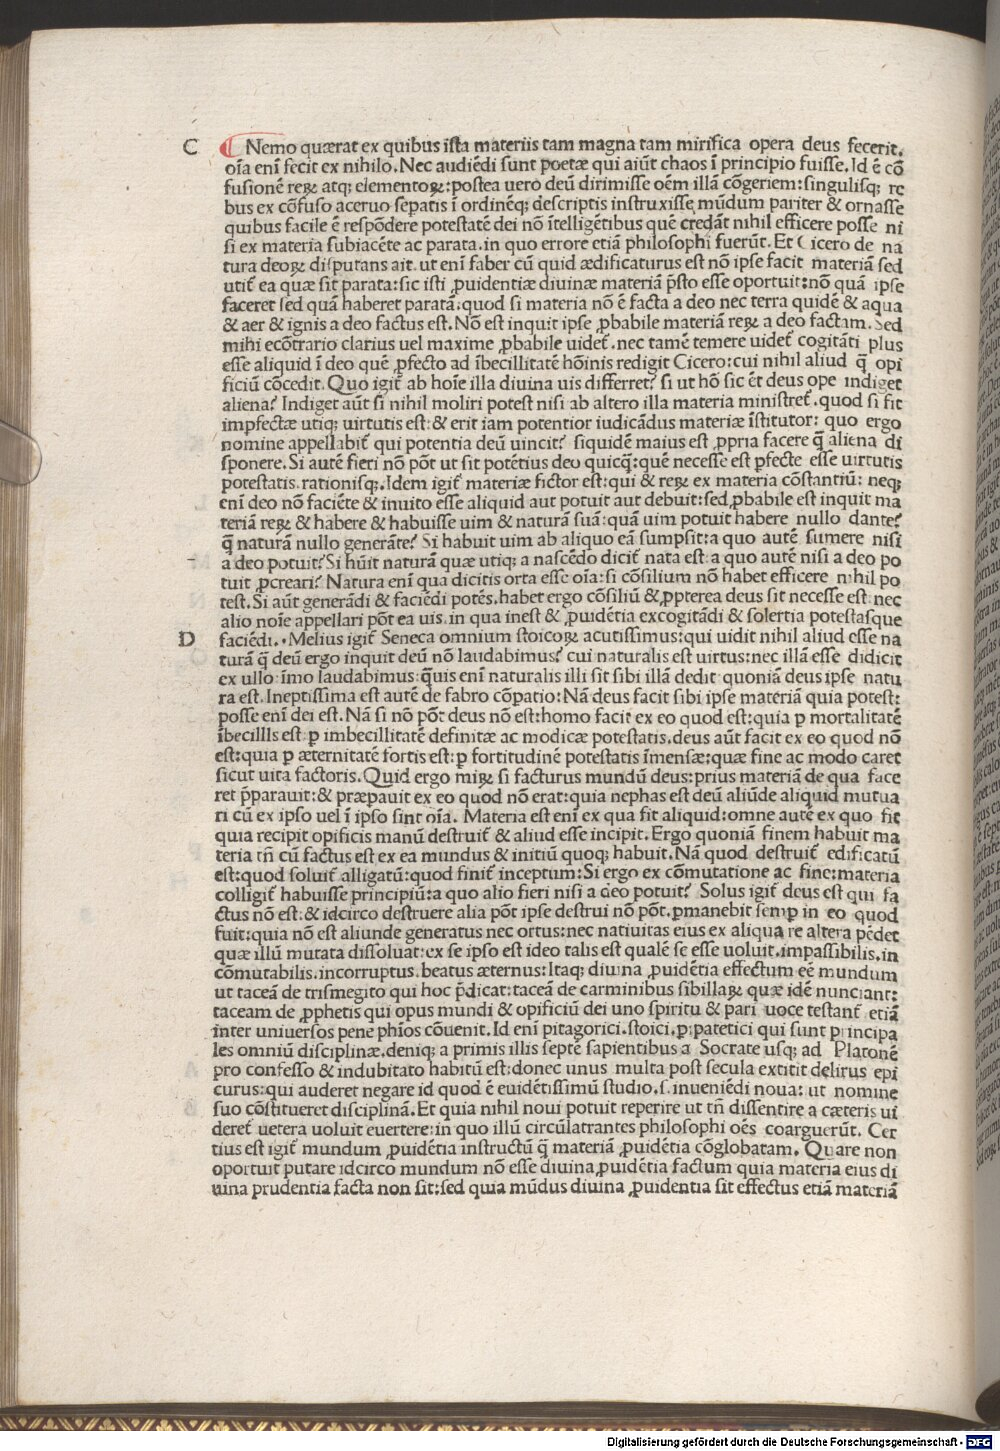 C Nemo quærat ex quibus ista materiis tam magna tam mirifica opera deus fecerit.
oĩa enĩ fecit ex nihilo. Nec audiẽdi sunt poetæ qui aiũt chaos ĩ principio fuisse. Id ẽ cõ
fusionẽ reꝝ atq; elementoꝝ: postea uero deũ dirimisse oẽm illã cõgeriem: singulisq; re
bus ex cõfuso aceruo sepatis ĩ ordinẽq; descriptis instruxisse mũdum pariter & ornasse
quibus facile ẽ respõdere potestatẽ dei nõ ĩtelligẽtibus quẽ credãt nihil efficere posse ni
si ex materia subiacẽte ac parata. in quo errore etiã philosophi fuerũt. Et Cicero de na
tura deoꝝ disputans ait. ut enĩ faber cũ quid ædificaturus est nõ ipse facit materiã sed
utit̃ ea quæ sit parata: sic isti ꝓuidentiæ diuinæ materiã p̃sto esse oportuit: nõ quã ipse
faceret sed quã haberet paratã: quod si materia nõ ẽ facta a deo nec terra quidẽ & aqua
& aer & ignis a deo factus est. Nõ est inquit ipse ꝓbabile materiã reꝝ a deo factam. Sed
mihi ecõtrario clarius uel maxime ꝓbabile uidet̃. nec tamẽ temere uidet̃ cogitãti plus
esse aliquid ĩ deo quẽ ꝓfecto ad ĩbecillitatẽ hõinis redigit Cicero: cui nihil aliud q̃ opi
ficiũ cõcedit. Quo igit̃ ab hoĩe illa diuina uis differret? si ut hõ sic ẽt deus ope indiget
aliena? Indiget aũt si nihil moliri potest nisi ab altero illa materia ministret̃. quod si fit
impfectæ utiq; uirtutis est: & erit iam potentior iudicãdus materiæ ĩstitutor: quo ergo
nomine appellabit̃ qui potentia deũ uincit? siquidẽ maius est ꝓpria facere q̃ aliena di
sponere. Si autẽ fieri nõ põt ut sit potẽtius deo quicq̃: quẽ necesse est pfecte esse uirtutis
potestatis. rationisq;. Idem igit̃ materiæ fictor est: qui & reꝝ ex materia cõstantiũ: neq;
enĩ deo nõ faciẽte & inuito esse aliquid aut potuit aut debuit: sed ꝓbabile est inquit ma
teriã reꝝ & habere & habuisse uim & naturã suã: quã uim potuit habere nullo dante?
q̃ naturã nullo generãte? Si habuit uim ab aliquo eã sumpsit: a quo autẽ sumere nisi
a deo potuit? Si hũit naturã quæ utiq; a nascẽdo dicit̃ nata est: a quo autẽ nisi a deo po
tuit ꝓcreari? Natura enĩ qua dicitis orta esse oĩa: si cõsilium nõ habet efficere nihil po
test. Si aũt generãdi & faciẽdi potẽs. habet ergo cõsiliũ & ꝓpterea deus sit necesse est: nec
alio noĩe appellari põt ea uis. in qua inest & ꝓuidẽtia excogitãdi & solertia potestasque
D faciẽdi.. Melius igit̃ Seneca omnium stoicoꝝ acutissimus: qui uidit nihil aliud esse na
turã q̃ deũ ergo inquit deũ nõ laudabimus? cui naturalis est uirtus: nec illã esse didicit
ex ullo: ĩmo laudabimus: q̃uis enĩ naturalis illi sit sibi illã dedit quoniã deus ipse natu
ra est. Ineptissima est autẽ de fabro cõpatio: Nã deus facit sibi ipse materiã quia potest:
posse enĩ dei est. Nã si nõ põt deus nõ est: homo facit ex eo quod est: quia p mortalitatẽ
ĩbecillls est: p imbecillitatẽ definitæ ac modicæ potestatis. deus aũt facit ex eo quod nõ
est: quia p æternitatẽ fortis est: p fortitudinẽ potestatis ĩmẽsæ: quæ fine ac modo caret
sicut uita factoris. Quid ergo miꝝ si facturus mundũ deus: prius materiã de qua face
ret p̃parauit: & præpauit ex eo quod nõ erat: quia nephas est deũ aliũde aliquid mutua
ri cũ ex ipso uel ĩ ipso sint oĩa. Materia est enĩ ex qua fit aliquid: omne autẽ ex quo fit
quia recipit opificis manũ destruit̃ & aliud esse incipit. Ergo quoniã finem habuit ma
teria tñ cũ factus est ex ea mundus & initiũ quoq; habuit. Nã quod destruit̃ edificatũ
est: quod soluit̃ alligatũ: quod finit̃ inceptum: Si ergo ex cõmutatione ac fine: materia
colligit̃ habuisse principiũ: a quo alio fieri nisi a deo potuit? Solus igit̃ deus est qui fa
ctus nõ est: & idcirco destruere alia põt ipse destrui nõ põt. pmanebit semp in eo quod
fuit: quia nõ est aliunde generatus nec ortus: nec natiuitas eius ex aliqua re altera pẽdet
quæ illũ mutata dissoluat: ex se ipso est ideo talis est qualẽ se esse uoluit. impassibilis. in
cõmutabilis. incorruptus. beatus æternus: Itaq; diuina ꝓuidẽtia effectum eẽ mundum
ut taceã de trismegito qui hoc p̃dicat: taceã de carminibus sibillaꝝ quæ idẽ nunciant:
taceam de ꝓphetis qui opus mundi & opificiũ dei uno spiritu & pari uoce testant̃ etiã
inter uniuersos pene phĩos cõuenit. Id enĩ pitagorici. stoici. pipatetici qui sunt principa
les omniũ disciplinæ. deniq; a primis illis septẽ sapientibus a Socrate usq; ad Platonẽ
pro confesso & indubitato habitũ est: donec unus multa post secula extitit delirus epi
curus: qui auderet negare id quod ẽ euidẽtissimũ studio. s. inueniẽdi noua: ut nomine
suo cõstitueret disciplinã. Et quia nihil noui potuit reperire ut tñ dissentire a cæteris ui
deret̃ uetera uoluit euertere: in quo illũ circũlatrantes philosophi oẽs coarguerũt. Cer
tius est igit̃ mundum ꝓuidẽtia instructũ q̃ materiã ꝓuidẽtia cõglobatam. Quare non
oportuit putare idcirco mundum nõ esse diuina ꝓuidẽtia factum quia materia eius di
uina prudentia facta non sit: sed quia mũdus diuina ꝓuidentia sit effectus etiã materiã
Digitalisierung gefördert durch die Deutsche Forschungsgemeinschaft - DFG